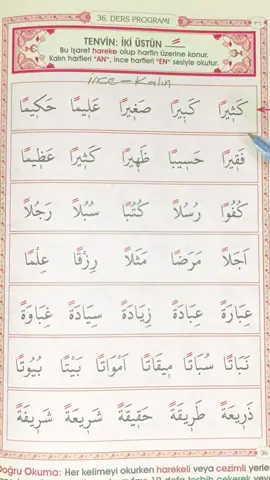 36. DERS PROGRAMI
TENVİN: İKİ ÜSTÜN ـً
Bu işaret hareke olup harfin üzerine konur.
Kalın harfleri "AN", ince harfleri "EN" sesiyle okutur.
ince - Kalın
كَثِيرًا كَبِيرًا صَغِيرًا عَلِيمًا حَكِيمًا
فَقِيرًا حَسِيبًا ظَهِيرًا كَثِيرًا عَظِيمًا
كُفُوًا رُسُلاً كُتُبًا سُبُلاً رَجُلاً
اَجَلاً مَرَضًا مَثَلاً رِزْقًا عِلْمًا
عِبَارَةً عِبَادَةً زِيَادَةً سِيَادَةً غِبَاوَةً
نَبَاتًا سُبَاتًا مِيقَاتًا اَمْوَاتًا بَيْتًا بُيُوتًا
ذَرِيعَةً طَرِيقَةً حَقِيقَةً شَرِيعَةً شَرِيفَةً
36
Doğru Okuma: Her kelimeyi okurken harekeli veya cezimli